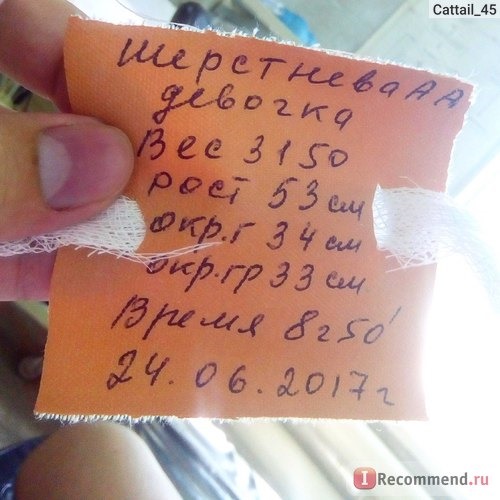 Cattail_45
Шерстнева А А
девочка
Вес 3150
рост 53 см
окр.г 34 см
окр.гр 33 см
Время 8г50'
24.06.2017г
IRecommend.ru